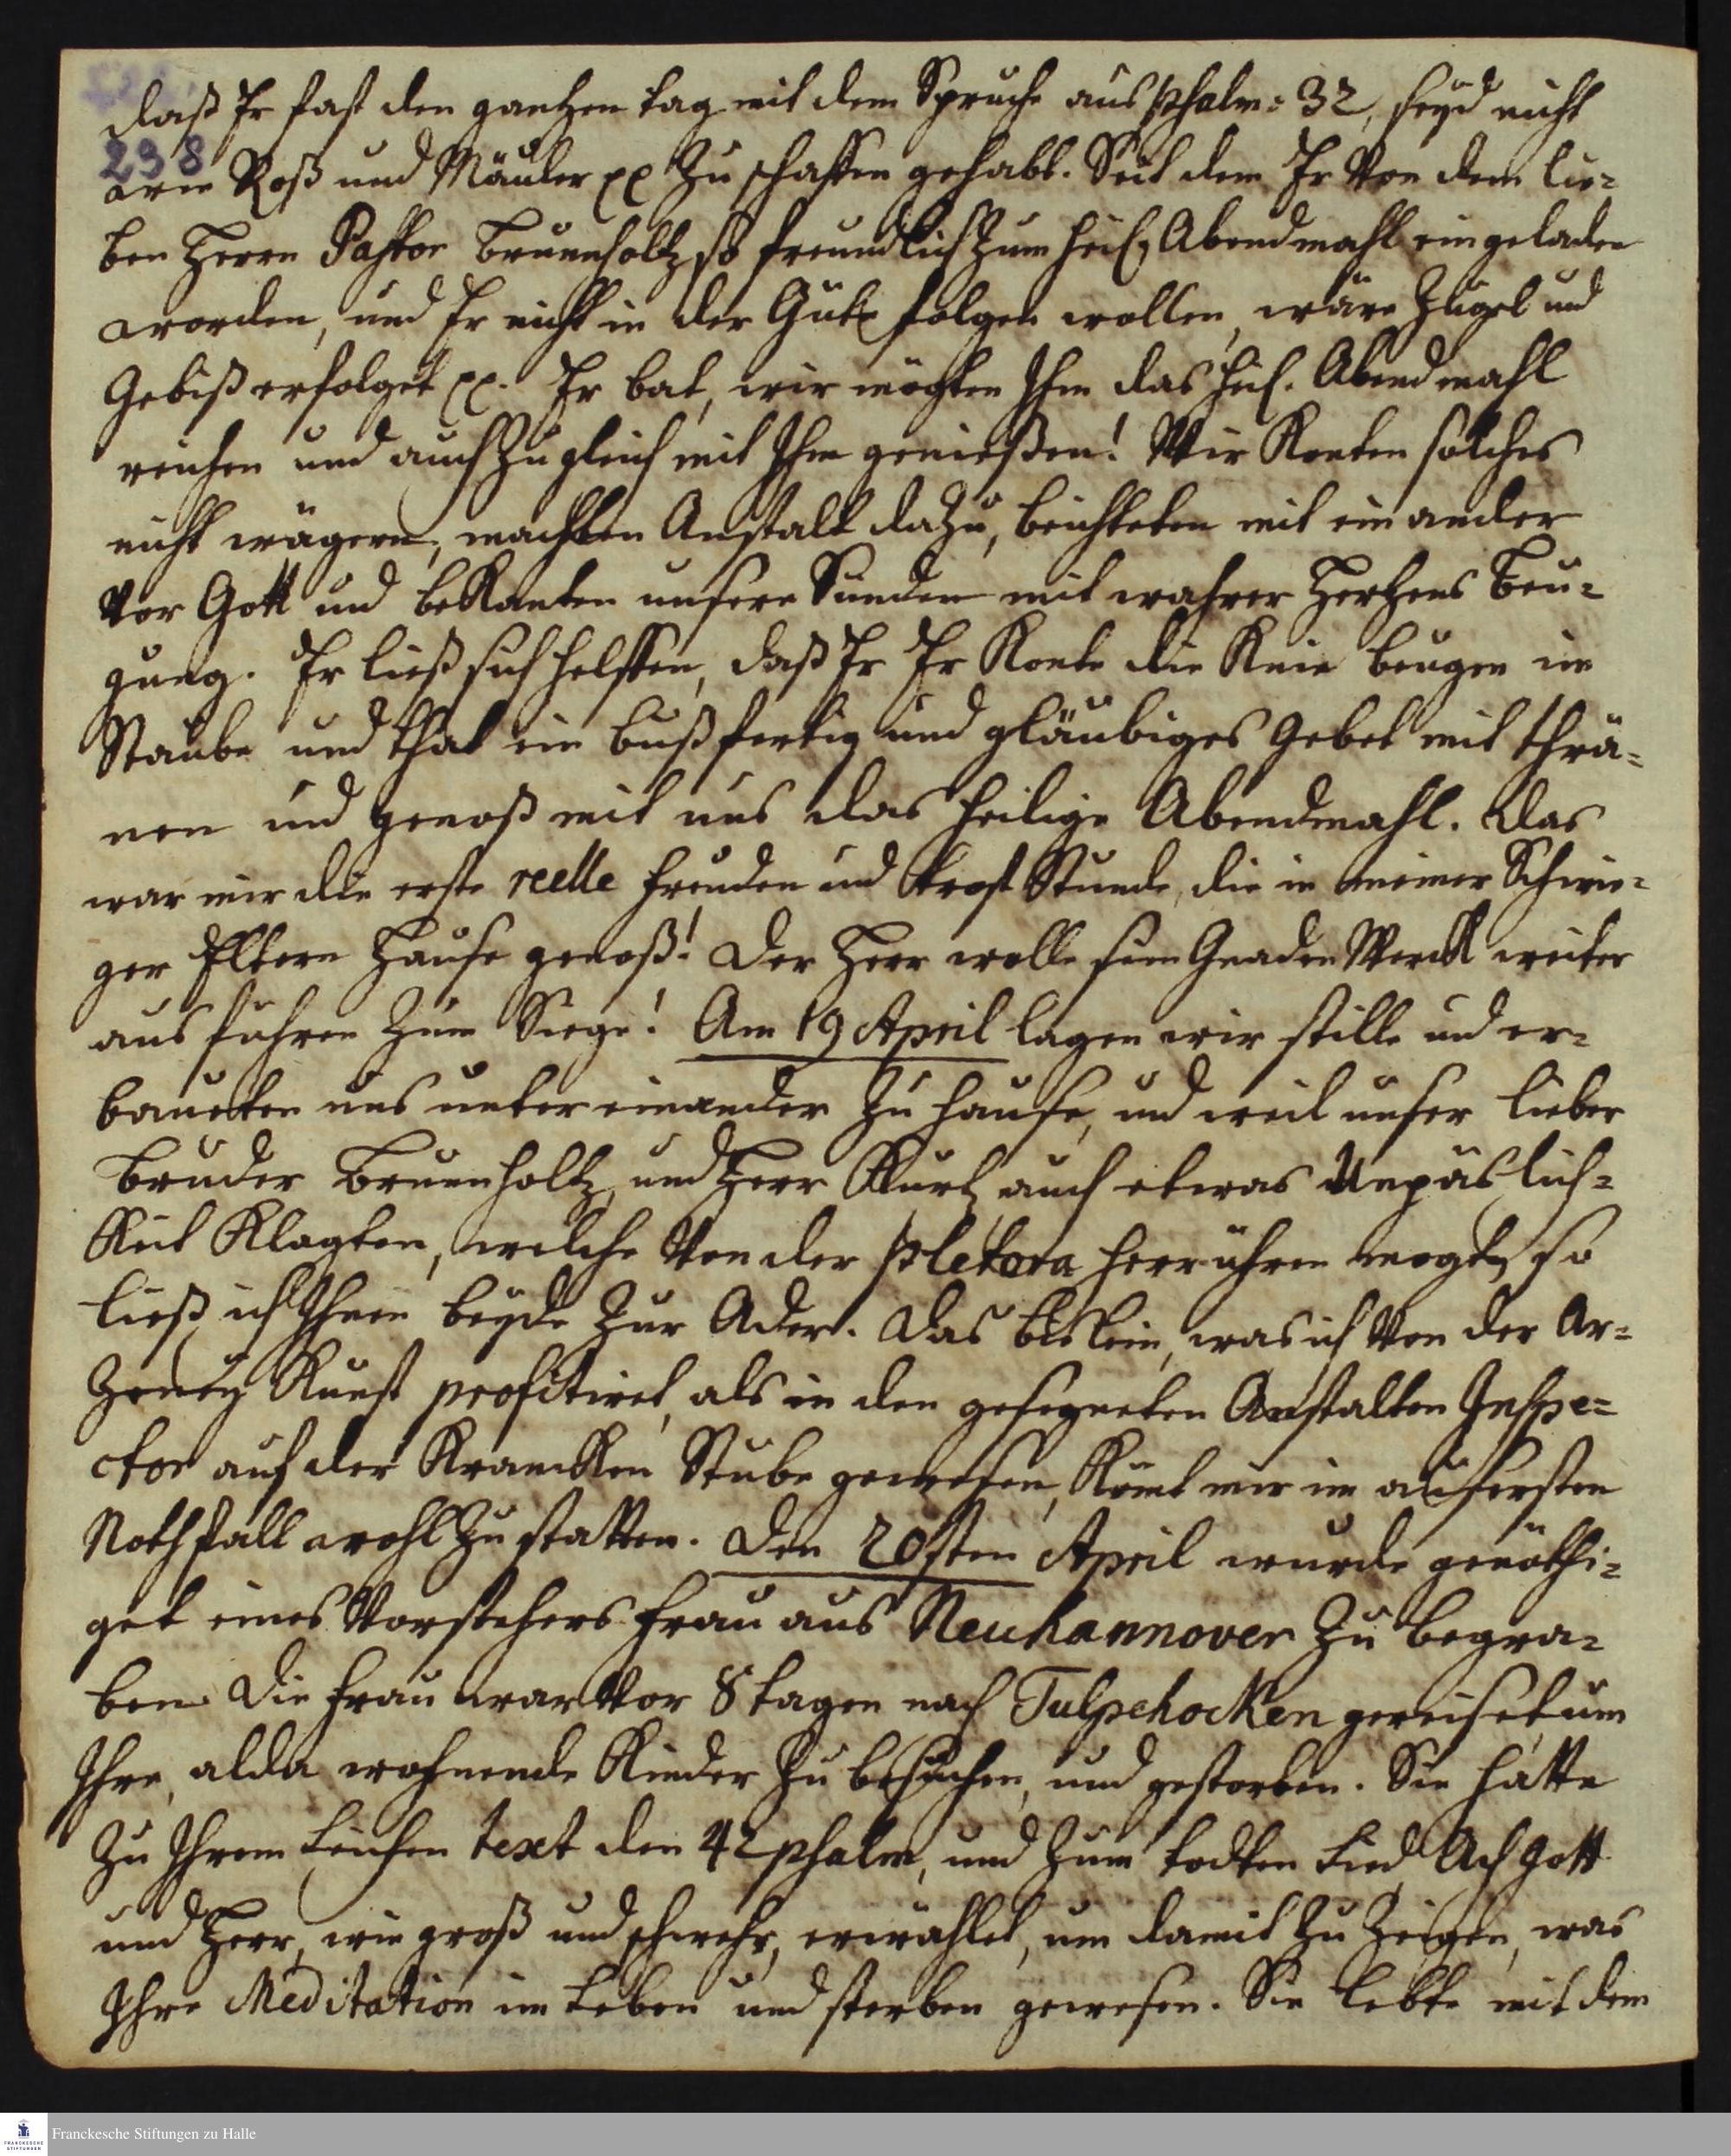 daß Er fast den gantzen tag mit dem Spruche aus psalm: 32, seyd nicht
238
wie Roß und Mäuler pp zu schaffen gehabt. Seit dem Er von dem lie-
ben Herrn Pastor Brunnholtz so freundlich zum heil. Abendmahl eingeladen
worden, und Er nicht in der Güte folgen wollen, wäre Zügel und
Gebiß erfolget pp. Er bat, wir mögten Ihm das heil. Abendmahl
reichen und auch zugleich mit Ihm genießen! Wir Konten solches
nicht wägern, machten Anstalt dazu, beichteten mit ein ander
vor Gott und beKanten unsere Sünden mit wahrer Hertzens Beu-
gung. Er ließ sich helffen, daß Er Er Konte die Knie beugen im
Staube und that ein bußfertig und gläubiges Gebet mit thrä-
nen und genoß mit uns das heilige Abendmahl. Das
war mir die erste reelle freuden und trost Stunde, die in meiner Schwie-
ger Eltern Hause genoß! Der Herr wolle sein Gnaden Werck weiter
aus führen zum Siege! Am 19 April lagen wir stille und er-
baueten uns unter einander zu hause, und weil unser lieber
Bruder Brunnholtz und Herr Kurtz auch etwas Unpäslich-
Keit Klagten, welche von der pletora herrühren mogte, so
ließ ich Ihnen beyde zur Ader. Das bislein, was ich von der Ar-
zeney Kunst profitiret, als in den gesegneten Anstalten Inspe-
ctor auf der Krancken Stube gewesen, Kömt mir im äusersten
Nothfall wohl zu statten. Den 20sten April wurde genöthi-
get eines Vorstehers frau aus Neuhannover zu begra-
ben. Die frau war vor 8 tagen nach Tulpehocken gereiset um
Ihre, alda wohnende Kinder zu besuchen, und gestorben. Sie hatte
zu Ihrem Leichen text den 42 psalm, und zum todten Lied Ach Gott
und Herr, wie groß und schwehr, erwählet, um damit zu zeigen, was
Ihre Meditation im Leben und sterben gewesen. Sie lebte mit dem
Franckesche Stiftungen zu Halle